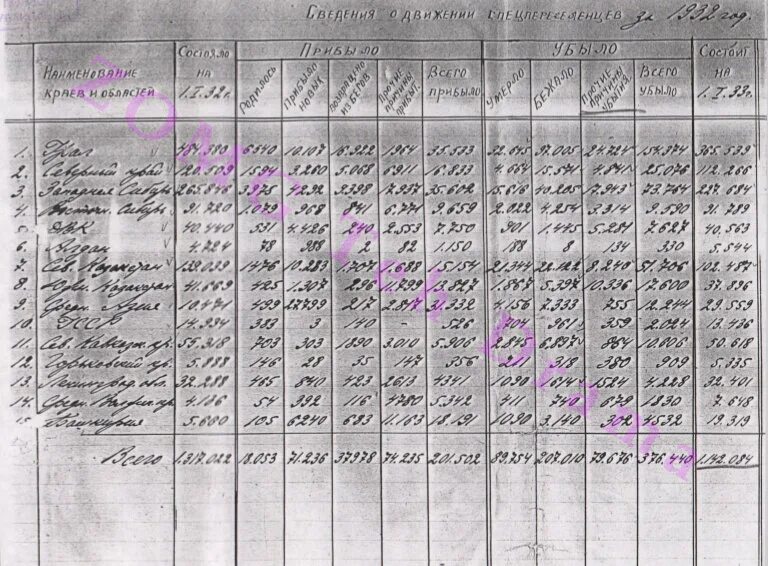 Сведения о движении спецпереселенцев за 1932 год.
Наименование краев и областей
Состояло на 1.I.32 г.
Прибыло
Родилось
Прибыло новых
Возвращено из бегов
Прочие причины прибыт.
Всего прибыло
Убыло
Умерло
Бежало
Прочие причины убытия
Всего убыло
Состоит на 1.I.33 г.
1. Урал 484.380 6540 10.107 16.922 1964 35.533 32.645 97.005 24.724 154.374 365.539
2. Северный край 120.509 1594 3.260 5.068 6911 16.833 4.664 15.571 4.841 25.076 112.266
3. Западная Сибирь 265.846 3.975 4292 9398 17.937 35.602 15.616 40.205 17.943 73.764 227.684
4. Восточн. Сибирь 91.720 1.079 968 841 6.771 9.659 2.022 4.254 3.314 9.590 91.789
5. ДВК 40.440 531 4.426 240 2.553 7.750 901 1.445 5.281 7.627 40.563
6. Алдан 4.724 78 988 2 82 1.150 188 8 134 330 5.544
7. Сев. Казахстан 139.039 1476 10.283 1.707 1.688 15.154 21.344 22.122 8.240 51.706 102.487
8. Южн. Казахстан 41.669 425 1.307 296 11.799 13.827 1.867 5.397 10.336 17.600 37.896
9. Средн. Азия 10.471 499 27799 217 2.817 31.332 4.156 7.333 755 12.244 29.559
10. УССР 14.934 383 3 140 - 526 704 961 359 2.024 13.436
11. Сев. Кавказск. кр. 55.318 703 303 1890 3.010 5.906 2.845 6.897 864 10.606 50.618
12. Горьковский кр. 5.888 146 28 35 147 356 211 318 380 909 5.335
13. Ленинград. обл. 32.288 465 840 423 2613 4341 1090 1614 1524 4.228 32.401
14. Средн. Волжск. кр. 4.136 54 392 116 4780 5.342 411 740 679 1830 7.648
15. Башкирия 5.660 105 6240 683 11.163 18.191 1090 3.140 302 4532 19.319
Всего 1.317.022 18.053 71.236 37978 74.235 201.502 89.754 207.010 79.676 376.440 1.142.084
ZOMG Teh Drama